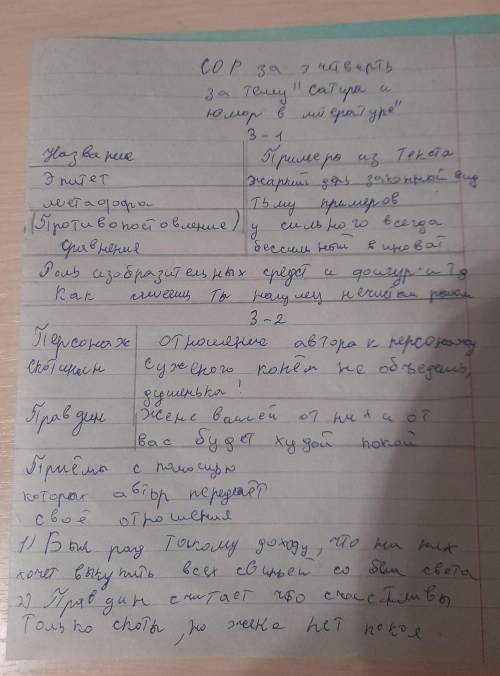 СОР за 3 четверть
за тему "Сатира и
юмор в литературе"
З-1
Название Примеры из текста
Эпитет жаркий день законной вид
метафора тьму примеров
(Противопоставление) у сильного всегда
сравнения бессильный виноват
Роль изобразительных средст и фигур и тд
Как смеешь ты наглец нечистым рылом
З-2
Персонаж отношение автора к персонажу
скотинин суженого конём не объедешь,
душенька!
Правдин жене вашей от них и от
вас будет худой покой
Приёмы с помощью
которых автор передаёт
своё отношения
1) Был рад такому доходу, что на них
хочет выкупить всех свиньей со бела света
2) Правдин считает что счастливы
только скоты, но жена нет покоя